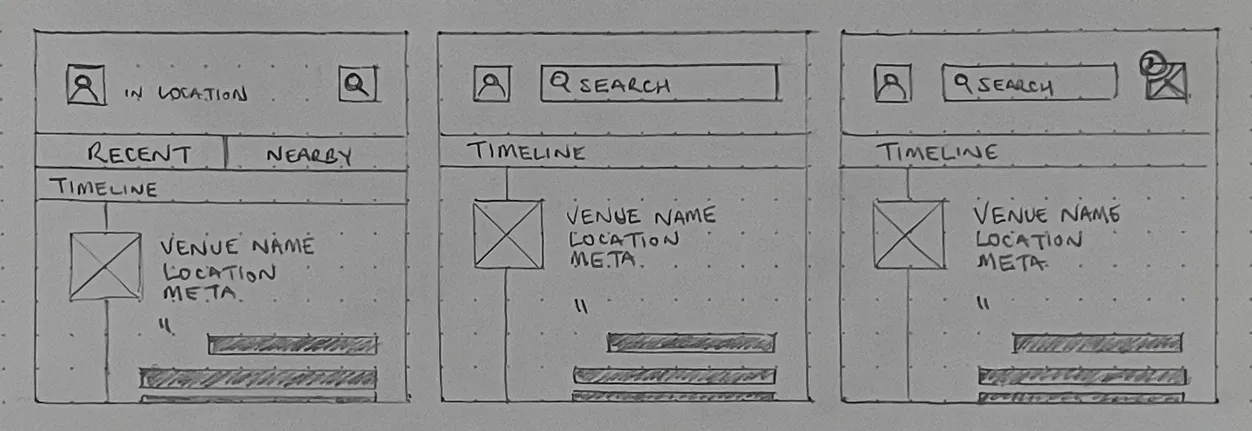 IN LOCATION
RECENT
NEARBY
TIMELINE
VENUE NAME
LOCATION
META
"
SEARCH
TIMELINE
VENUE NAME
LOCATION
META
"
SEARCH
TIMELINE
VENUE NAME
LOCATION
META
"